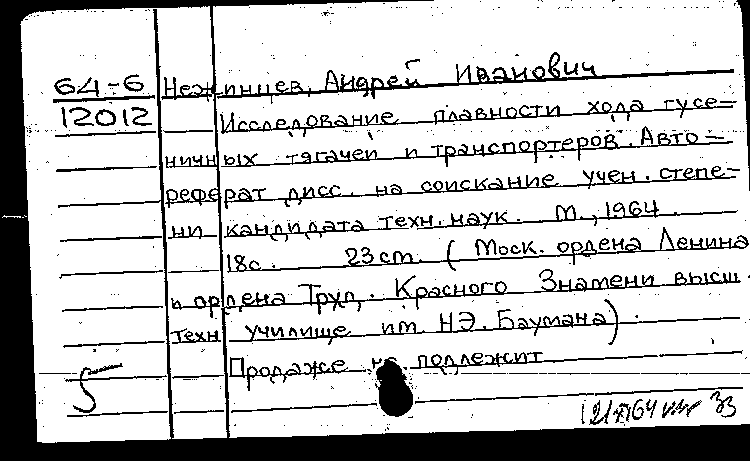 64-6 Нежинцев, Андрей Иванович
12012 Исследование плавности хода гусе=
ничных тягачей и транспортеров. Авто=
реферат дисс. на соискание учен. степе=
ни кандидата техн. наук. М., 1964.
18с. 23 см. (Моск. ордена Ленина
и ордена Труд. Красного Знамени высш.
техн училище им. Н.Э. Баумана).
Продаже не подлежит
5
33